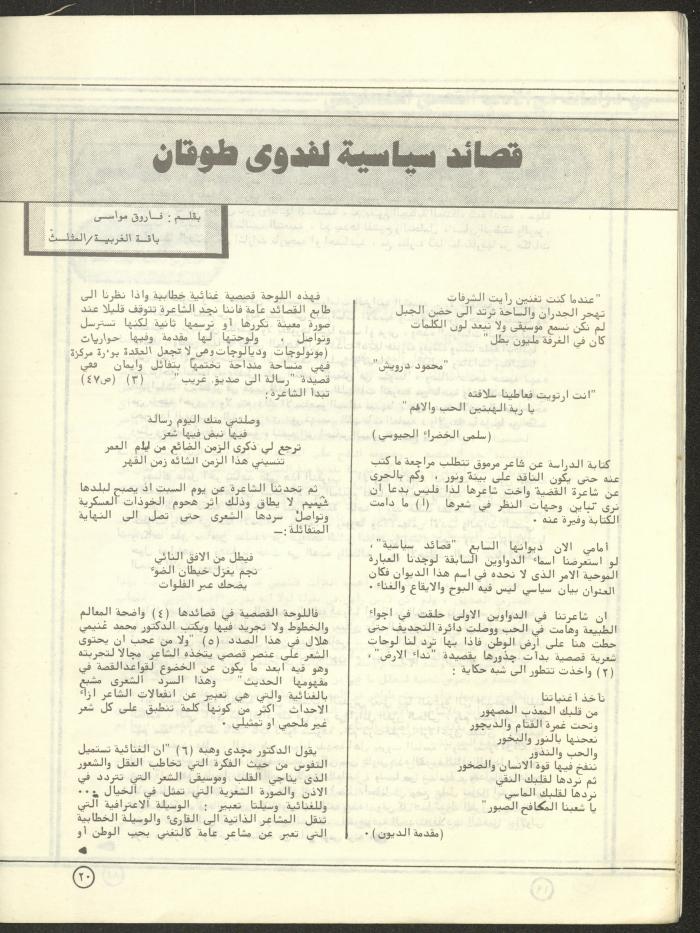 قصائد سياسية لفدوى طوقان
بقلم : فاروق مواسى
باقة الغربية/المثلث
"عندما كنت تغنين رأيت الشرفات
تهجر الجدران والساحة ترتد الى خصر الجبل
لم نكن نسمع موسيقى ولا نبعد لون الكلمات
كان في الغرفة مليون بطل"
"محمود درويش"
"انت ارتويت فعاطينا سلافته
يا ربة الهبتين الحب والالم"
(سلمى الخضراء الجيوسي)
كتابة الدراسة عن شاعر مرموق تتطلب مراجعة ما كتب
عنه حتى يكون الناقد على بينة ونور ، وكم بالحرى
عن شاعرة القضية واخت شاعرها لذا فليس بدعا ان
نرى تباين وجهات النظر في شعرها (١) ما دامت
الكتابة وفيرة عنه .
أمامي الان ديوانها السابع "قصائد سياسية"،
لو استعرضنا اسماء الدواوين السابقة لوجدنا العبارة
الموحية الامر الذى لا نجده في اسم هذا الديوان فكان
العنوان بيان سياسي ليس فيه البوح والايقاع والغناء .
ان شاعرتنا في الدواوين الاولى حلقت في اجواء
الطبيعة وهامت في الحب ووصلت دائرة التجديف حتى
حطت هنا على أرض الوطن فاذا بها ترد لنا لوحات
شعرية قصصية بدأت جذورها بقصيدة "نداء الارض"،
(٢) واخذت تتطور الى شبه حكاية :
نأخذ أغنياتنا
من قلبك المعذب المصهور
وتحت غمرة القتام والديجور
نعجنها بالنور والبخور
والحب والنذور
ننفخ فيها قوة الانسان والصخور
ثم نردها لقلبك النقي
نردها لقلبك الماسي
يا شعبنا المكافح الصبور"
(مقدمة الديون) .
فهذه اللوحة قصصية غنائية خطابية واذا نظرنا الى
طابع القصائد عامة فاننا نجد الشاعرة تتوقف قليلا عند
صورة معينة تكررها أو ترسمها ثانية لكنها تسترسل
وتواصل ، ولوحتها لها مقدمة وفيها حواريات
(مونولوجات وديالوجات وهى لا تجعل العقدة بوءرة مركزة
فهي منساحة منداحة تختمها بتفائل وايمان ففي
قصيدة "رسالة الى صديق غريب" (٣) (ص٤٧)
تبدأ الشاعرة:
وصلتني منك اليوم رسالة
فيها نبض فيها شعر
ترجع لي ذكرى الزمن الضائع من ايام العمر
تنسيني هذا الزمن الشائه زمن القهر
ثم تحدثنا الشاعرة عن يوم السبت اذ يصبح لبلدها
شميم لا يطاق وذلك اثر هجوم الخوذات العسكرية
وتواصل سردها الشعرى حتى تصل الى النهاية
المتفائلة:ـــ
فيطل من الافق النائي
نجم يغزل خيطان الضوء
يضحك عبر الفلوات
فاللوحة القصصية في قصائدها (٤) واضحة المعالم
والخطوط ولا تجريد فيها ويكتب الدكتور محمد غنيمي
هلال في هذا الصدد (٥) "ولا من عجب ان يحتوى
الشعر على عنصر قصصي يتخذه الشاعر مجالا لتجربته
وهو فيه ابعد ما يكون عن الخضوع لقواعد القصة في
مفهومها الحديث" وهذا السرد الشعرى مشبع
بالغنائية والتي هي تعبير عن انفعالات الشاعر ازاء
الاحداث اكثر من كونها كلمة تنطبق على كل شعر
غير ملحمي أو تمثيلي .
يقول الدكتور مجدى وهبه (٦) "ان الغنائية تستميل
النفوس من حيث الفكرة التي تخاطب العقل والشعور
الذى يناجي القلب وموسيقى الشعر التي تتردد في
الاذن والصورة الشعرية التي تمثل في الخيال ...
وللغنائية وسيلتا تعبير : الوسيلة الاعترافية التي
تنقل المشاعر الذاتية الى القارىء والوسيلة الخطابية
التي تعبر عن مشاعر عامة كالتغني بحب الوطن أو
٢٠